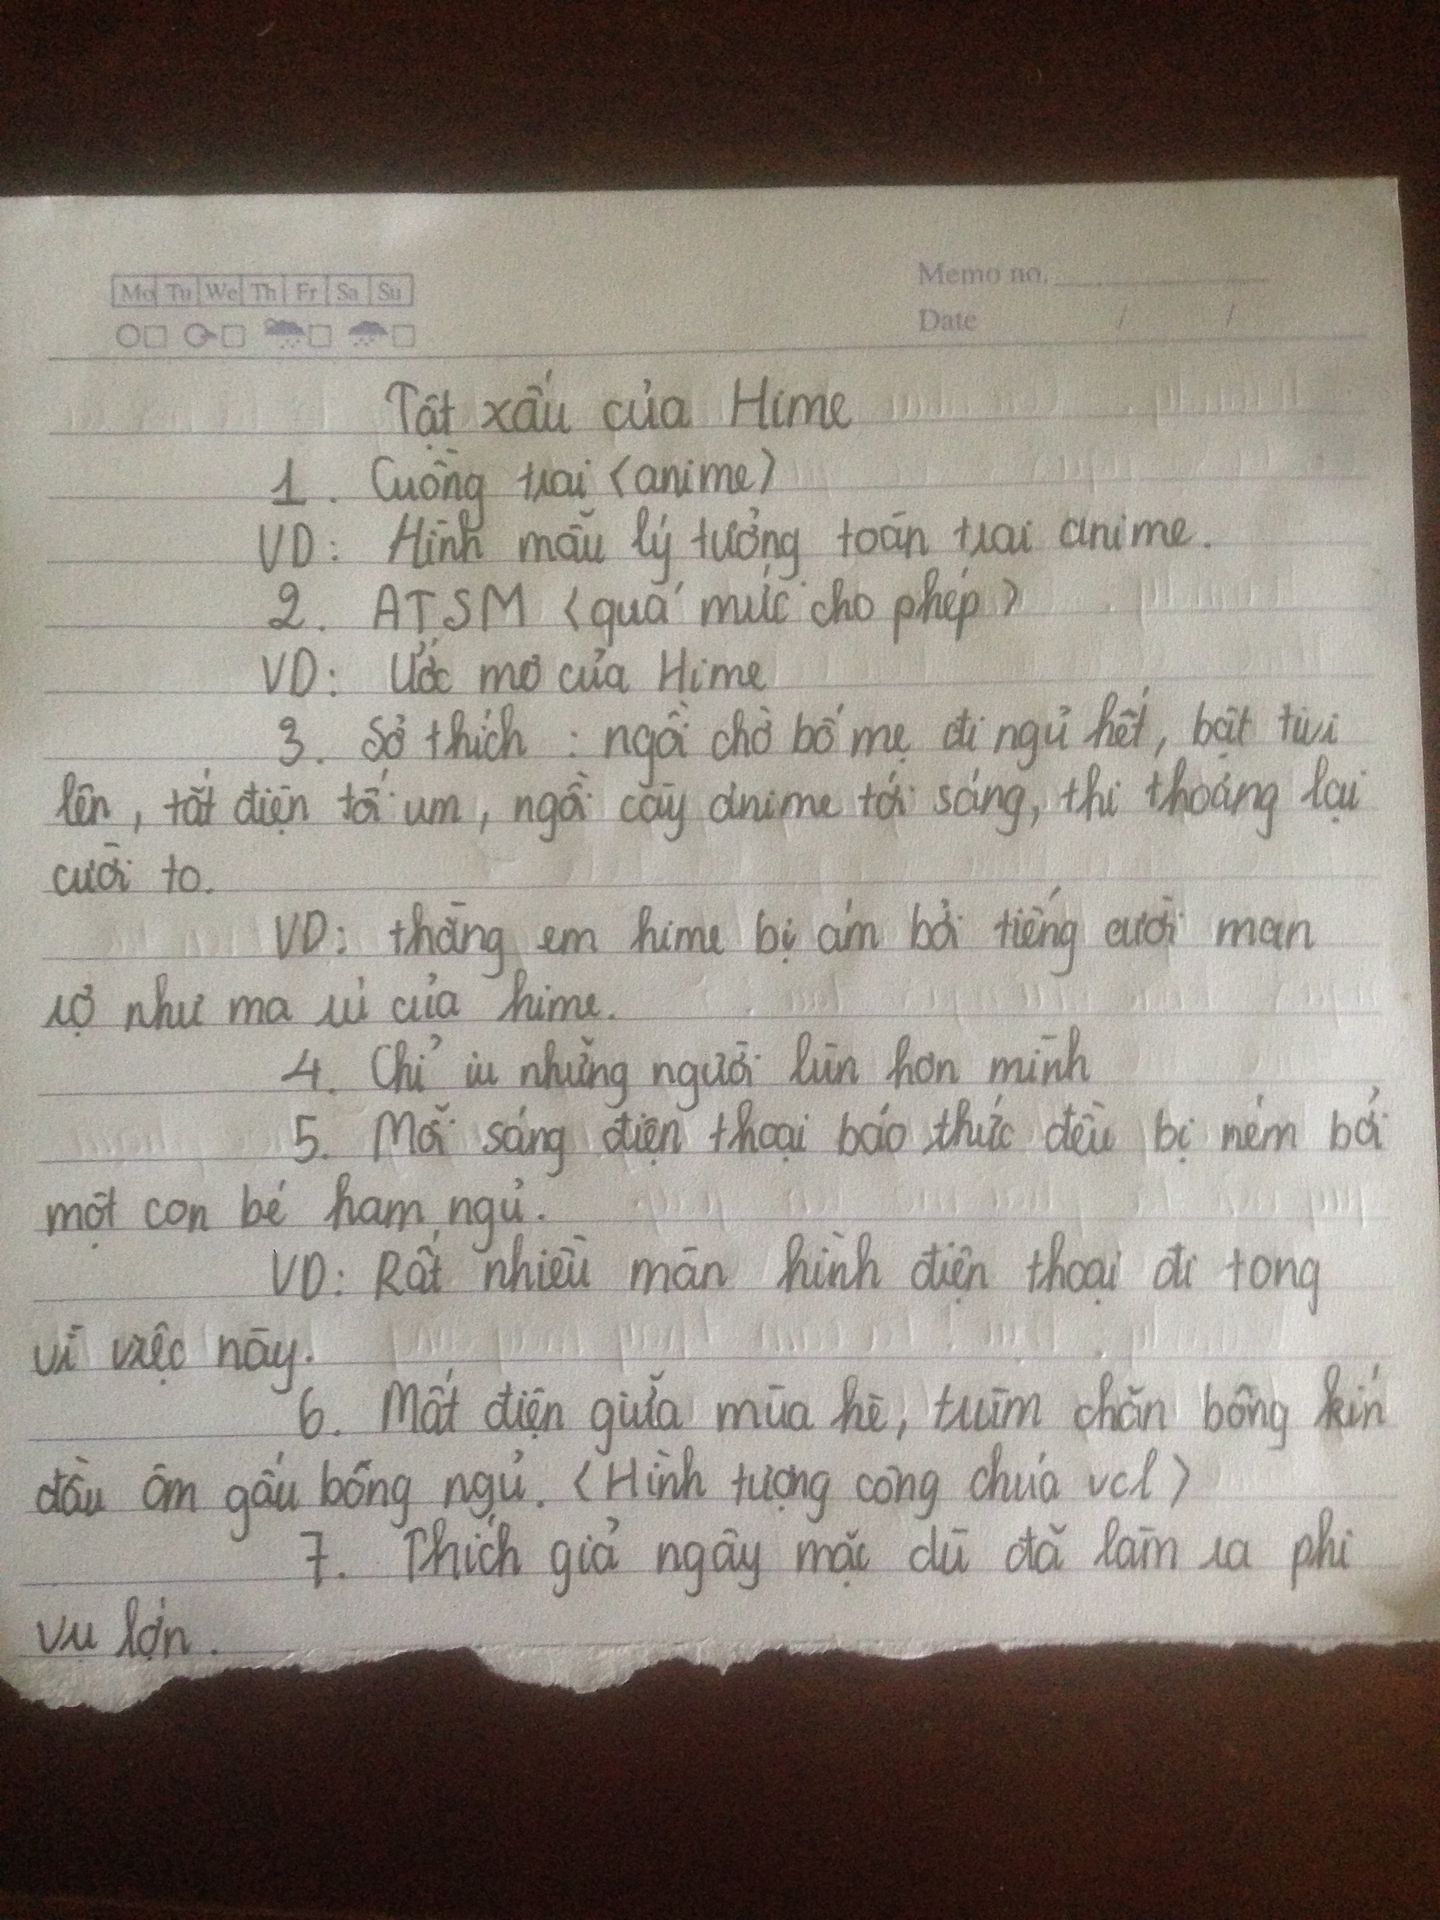 Mo Tu We Th Fr Sa Su
Memo no.
Date / /
Tật xấu của Hime
1. Cuồng trai (anime)
VD: Hình mẫu lý tưởng toàn trai anime.
2. ATSM (quá mức cho phép)
VD: Ước mơ của Hime
3. Sở thích : ngồi chờ bố mẹ đi ngủ hết, bật tivi
lên, tắt điện tối um, ngồi cày anime tới sáng, thi thoảng lại
cười to.
VD: thằng em hime bị ám bởi tiếng cười man
rợ như ma rủ của hime.
4. Chỉ iu những người lùn hơn mình
5. Mỗi sáng điện thoại báo thức đều bị ném bởi
một con bé ham ngủ.
VD: Rất nhiều màn hình điện thoại đi tong
vì việc này.
6. Mất điện giữa mùa hè, trùm chăn bông kín
đầu ôm gấu bông ngủ. (Hình tượng công chúa vcl)
7. Thích giả ngây mặc dù đã làm ra phi
vụ lớn.